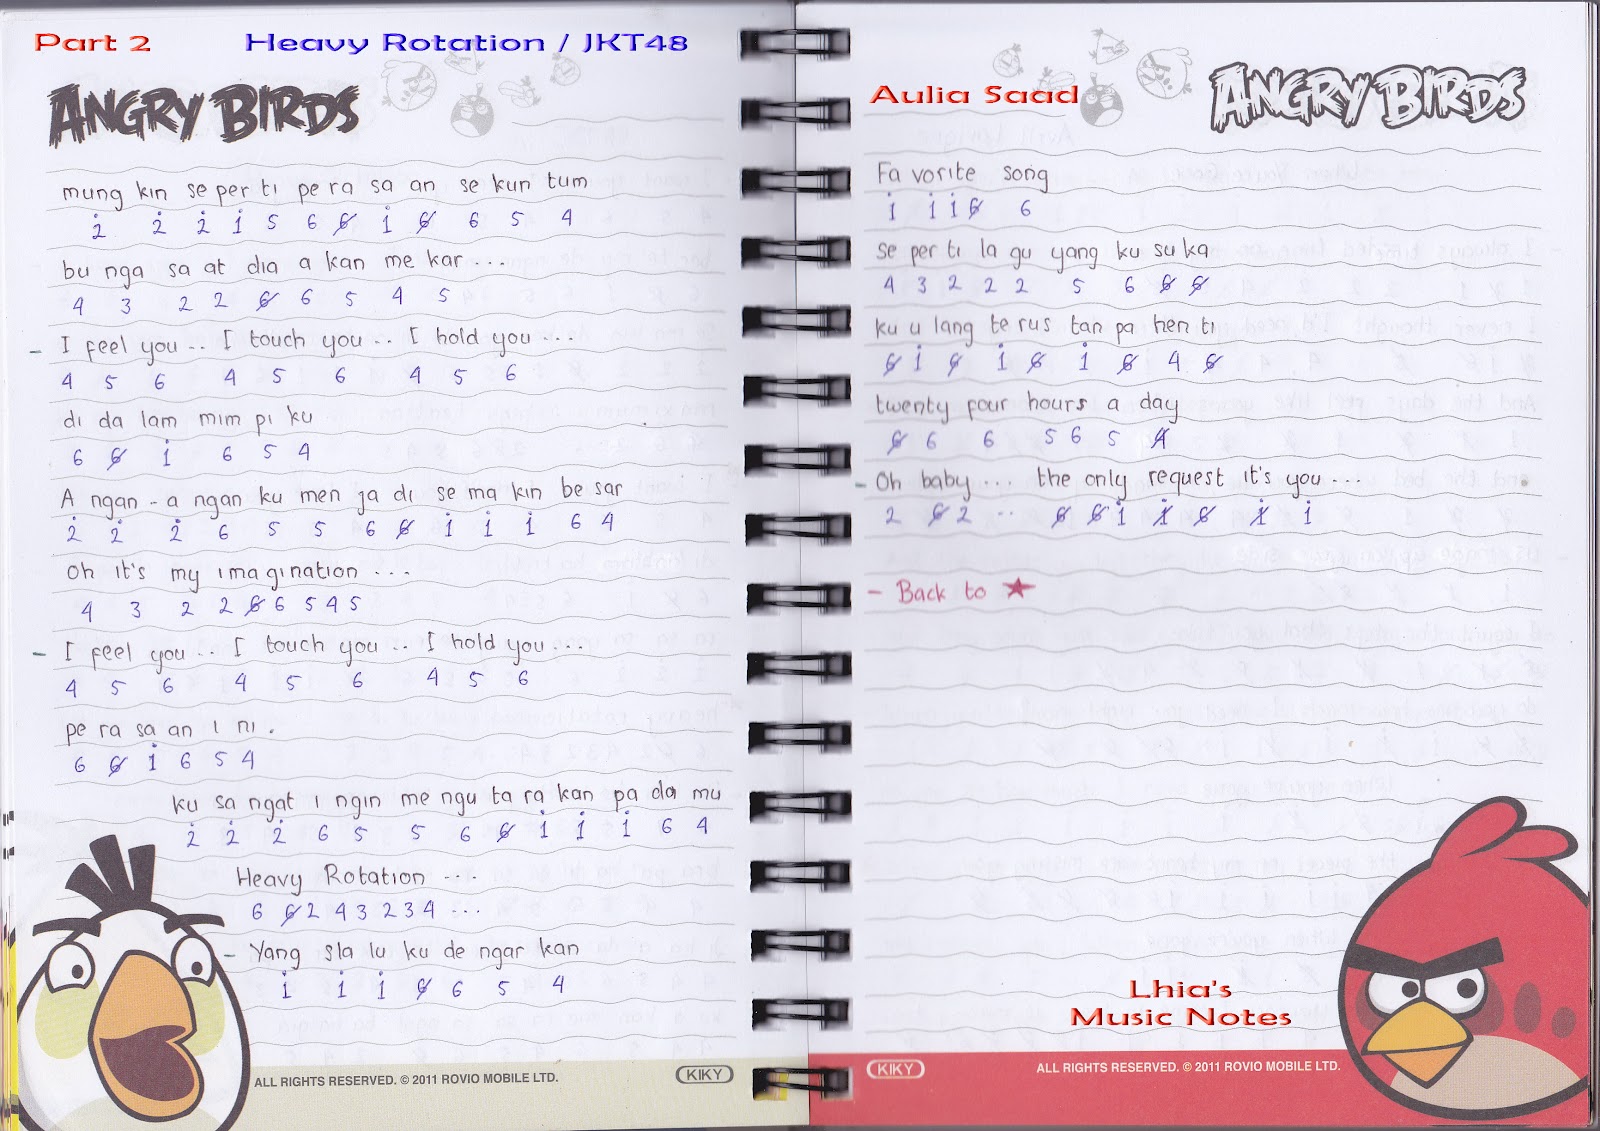 Part 2 Heavy Rotation / JKT48
ANGRY BIRDS
mung kin se per ti pe ra sa an se kun tum
2̇ 2̇ 2̇ 1̇ 5 6 6̸ 1̇ 6̸ 6 5 4
bu nga sa at dia a kan me kar...
4 3 2 2 6̸ 6 5 4 5
- I feel you .. I touch you .. I hold you ...
4 5 6 4 5 6 4 5 6
di da lam mim pi ku
6 6̸ 1̇ 6 5 4
A ngan - a ngan ku men ja di se ma kin be sar
2̇ 2̇ 2̇ 6 5 5 6 6̸ 1̇ 1̇ 1̇ 6 4
Oh it's my imagination ...
4 3 2 2 6̸ 6 5 4 5
- I feel you .. I touch you .. I hold you ...
4 5 6 4 5 6 4 5 6
pe ra sa an i ni .
6 6̸ 1̇ 6 5 4
ku sa ngat i ngin me ngu ta ra kan pa da mu
2̇ 2̇ 2̇ 6 5 5 6 6̸ 1̇ 1̇ 1̇ 6 4
Heavy Rotation ...
6 6̸ 2 4 3 2 3 4 ...
- Yang sla lu ku de ngar kan
1̇ 1̇ 1̇ 6̸ 6 5 4
ALL RIGHTS RESERVED. © 2011 ROVIO MOBILE LTD. KIKY
Aulia Saad
ANGRY BIRDS
Fa vorite song
1̇ 1̇ 1̇ 6̸ 6
se per ti la gu yang ku su ka
4 3 2 2 2 5 6 6̸ 6̸
ku u lang te rus tan pa hen ti
6̸ 1̇ 6̸ 1̇ 6̸ 1̇ 6̸ 4 6̸
twenty four hours a day
6̸ 6 6 5 6 5 4̸
- Oh baby ... the only request it's you ...
2 6̸ 2 ... 6̸ 6̸ 1̇ 1̸̇ 6̸ 1̸̇ 1̇
- Back to ★
Lhia's
Music Notes
KIKY ALL RIGHTS RESERVED. © 2011 ROVIO MOBILE LTD.